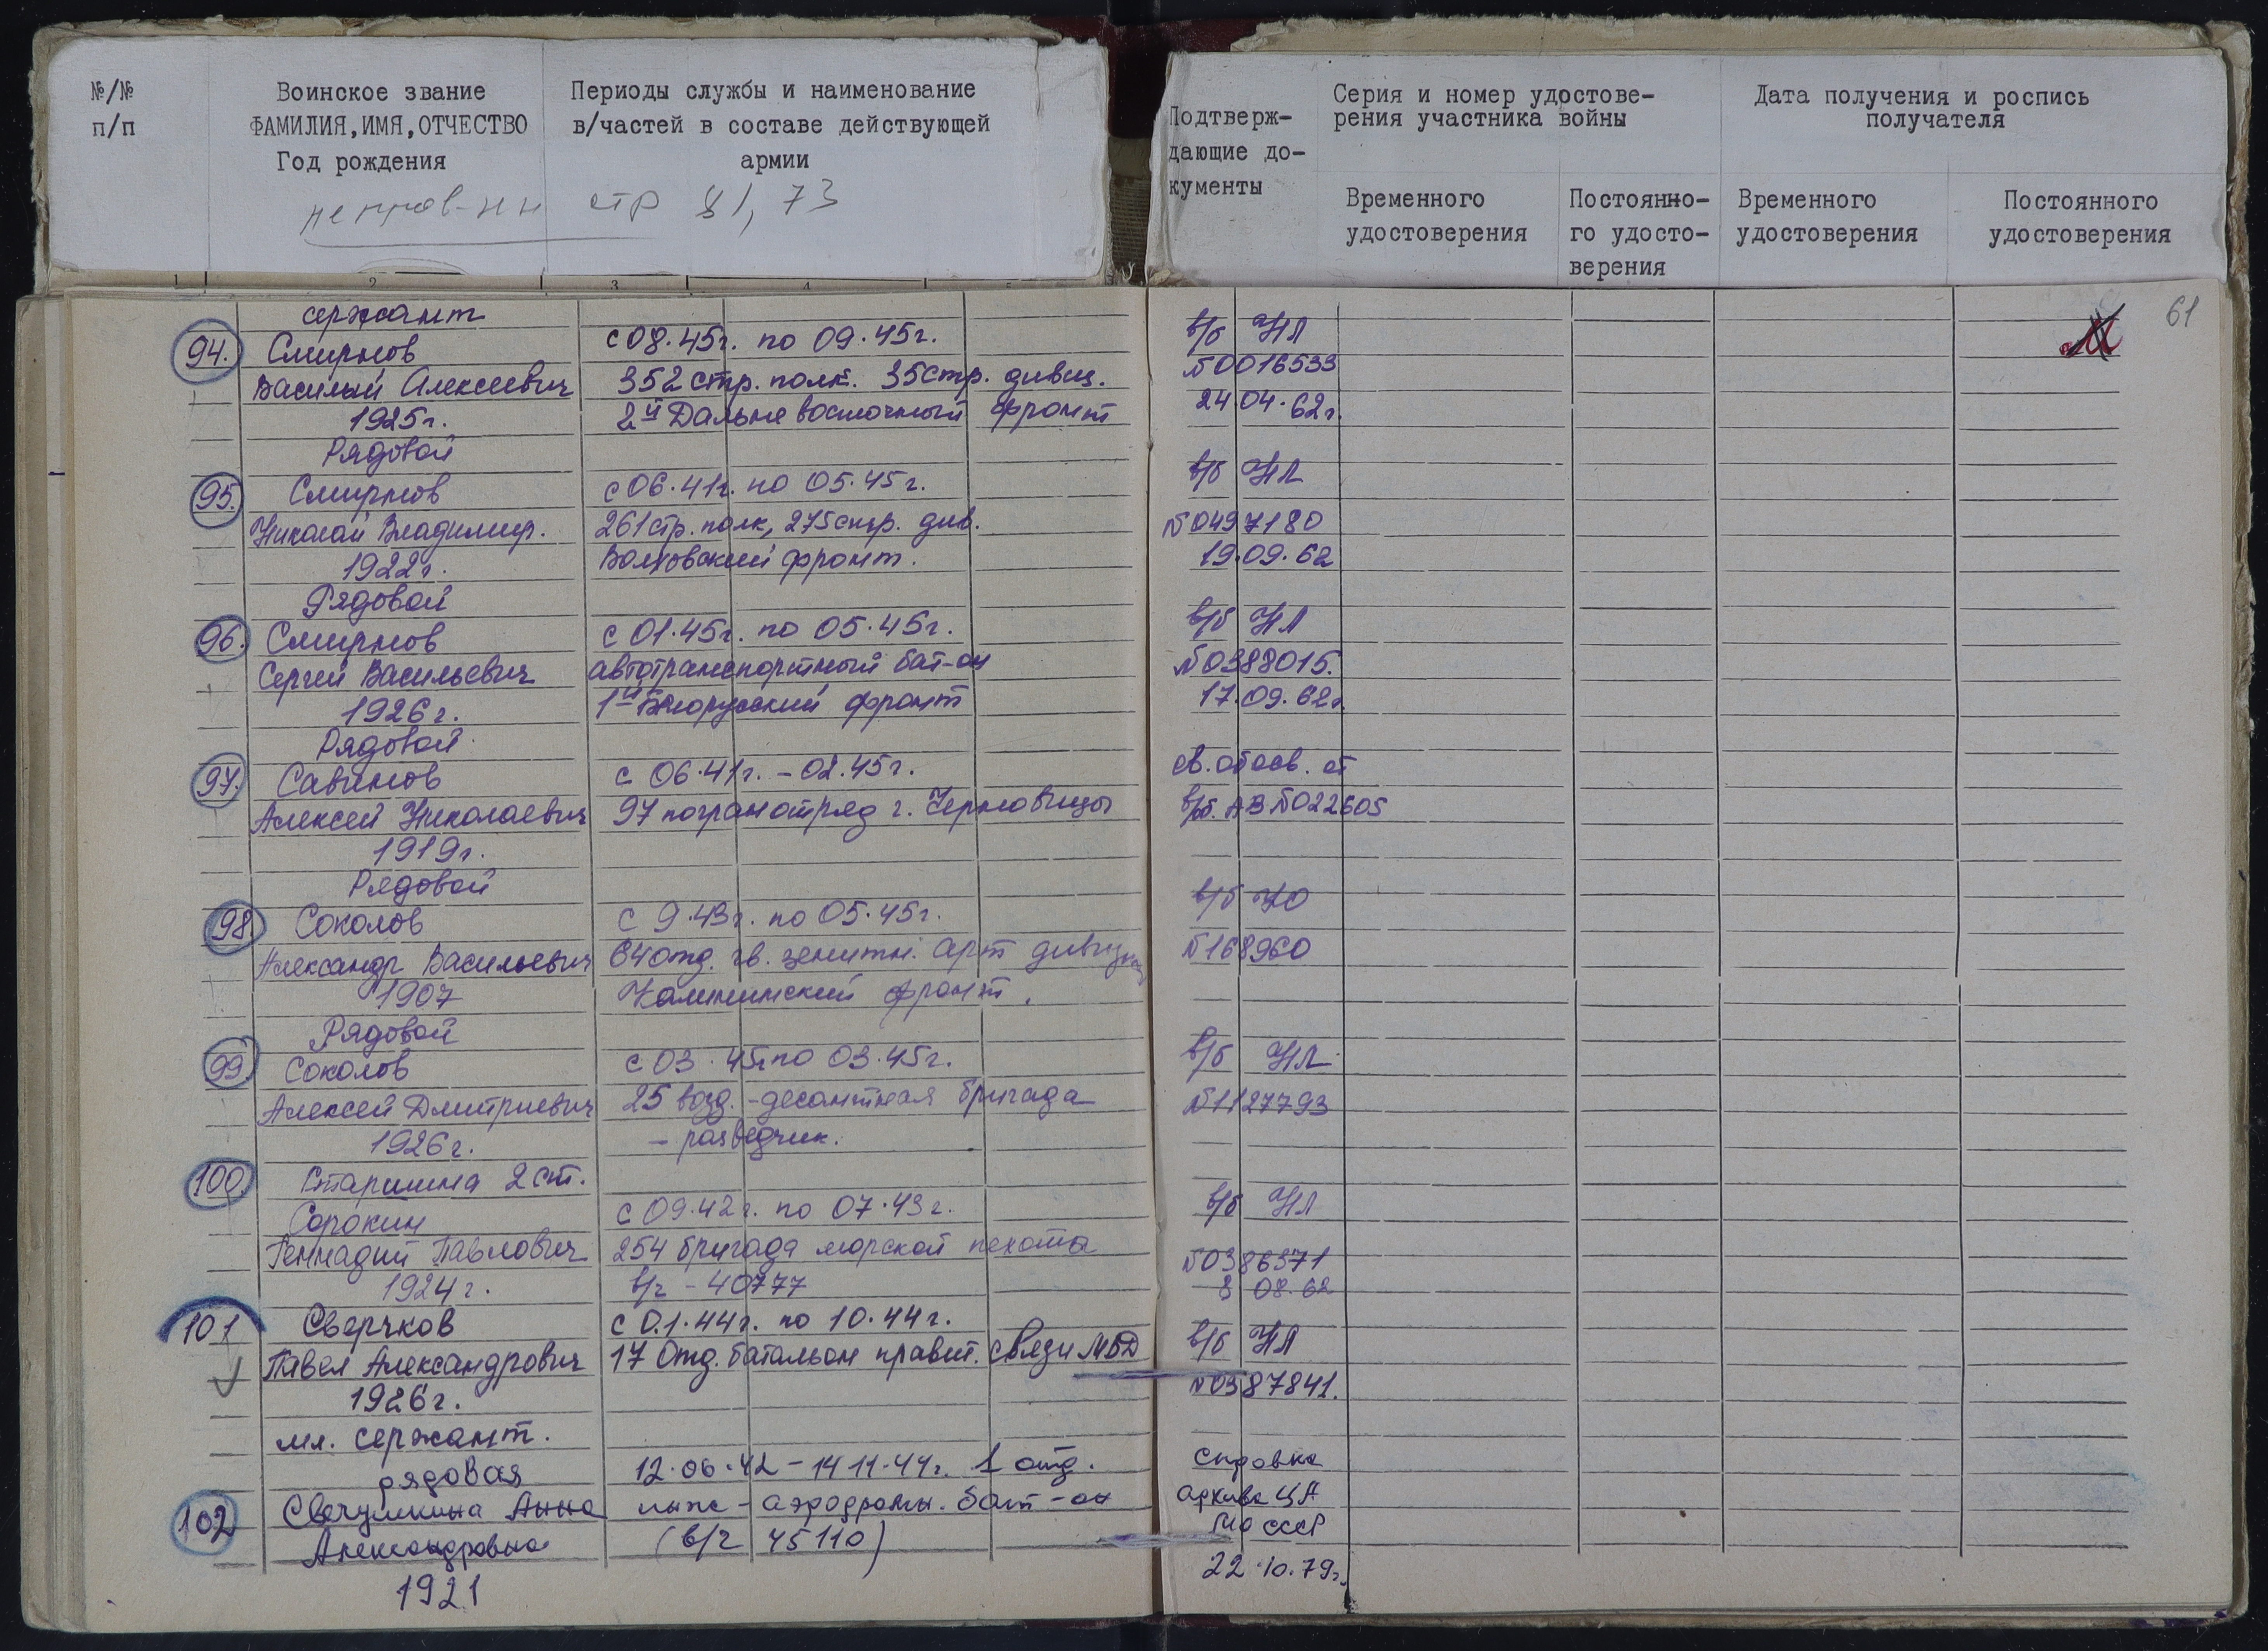 №/№
п/п
Воинское звание
ФАМИЛИЯ, ИМЯ, ОТЧЕСТВО
Год рождения
Периоды службы и наименование
в/частей в составе действующей
армии
стр 81, 73
Подтверж-
дающие до-
кументы
Серия и номер удостове-
рения участника войны
Дата получения и роспись
получателя
Временного
удостоверения
Постоянно-
го удосто-
верения
Временного
удостоверения
Постоянного
удостоверения
1 2 3 4 5
61
сержант
94. Смирнов
Василий Алексеевич
1925г.
с 08.45г. по 09.45г.
352 стр. полк. 35 стр. дивиз.
2й Дальне восточный фронт
в/б НЛ
№0016533
24.04.62г.
Рядовой
95. Смирнов
Николай Владимир.
1922г.
с 06.41г. по 05.45г.
261 стр. полк, 275 стр. див.
Волховский фронт.
в/б НЛ
№0497180
19.09.62
Рядовой
96. Смирнов
Сергей Васильевич
1926г.
с 01.45г. по 05.45г.
автотранспортный бат-он
1й Белорусский фронт
в/б НЛ
№0388015.
17.09.62г.
Рядовой
97. Савинов
Алексей Николаевич
1919г.
с 06.41г. - 02.45г.
97 погранотряд г. Черновицы
св. об осв. от
в/об. АВ №022605
Рядовой
98. Соколов
Александр Васильевич
1907
с 9.43г. по 05.45г.
64 отд. гв. зенитн. арт дивизион
Калининский фронт.
в/б
№168960
Рядовой
99. Соколов
Алексей Дмитриевич
1926г.
с 03.45г по 03.45г.
25 возд.-десантная бригада
- разведчик.
в/б НЛ
№1127793
100. Старшина 2 ст.
Сорокин
Геннадий Павлович
1924г.
с 09.42г. по 07.43г.
254 бригада морской пехоты
в/ч - 40777
в/б НЛ
№0386371
8 08.62
101 Сверчков
Павел Александрович
1926г.
мл. сержант.
с 01.44г. по 10.44г.
17 Отд. батальон правит. связи МВД
в/б НЛ
№0387841.
рядовая
102 Свечумкина Анна
Александровна
1921
12.06.42 - 14 11.44г. 1 отд.
инж - аэродромн. бат-он
(в/ч 45110)
Справка
архива ЦА
МО СССР
22.10.79г.